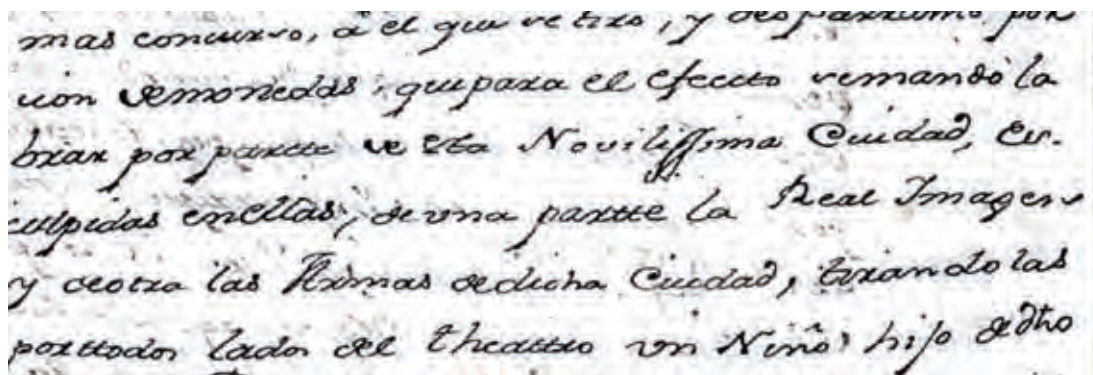 mas concurso, a el que se tiro, y desparramo por
cion de monedas, que para el efecto se mando la
brar por partte de esta Novilissima Ciudad, es-
culpidas en ellas, de una partte la Real Imagen
y de otra las Armas de dicha Ciudad, tirandolas
por ttodos lados de el theattro un Niño, hijo de dho